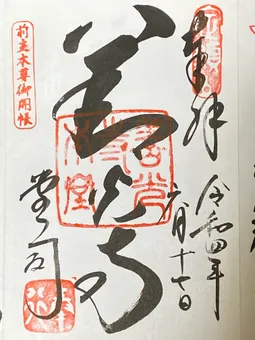 奉拝
令和四年
六月十七日
善光寺
前立本尊御開帳
堂司